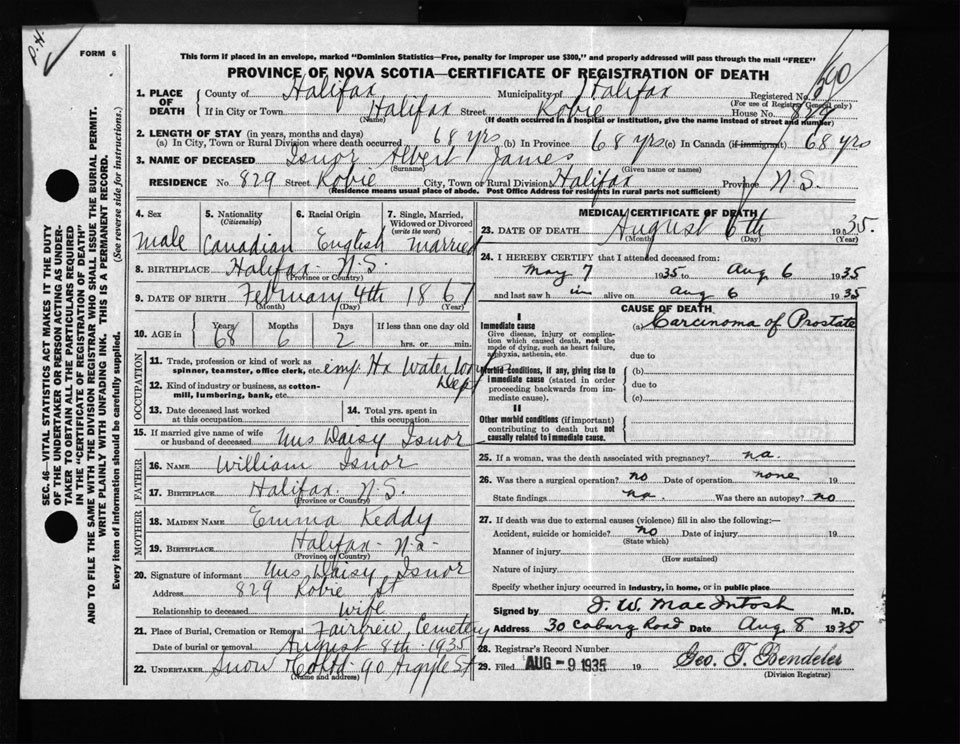 D.H.
FORM 6
This form if placed in an envelope, marked "Dominion Statistics—Free, penalty for improper use $300," and properly addressed will pass through the mail "FREE"
PROVINCE OF NOVA SCOTIA—CERTIFICATE OF REGISTRATION OF DEATH
1. PLACE OF DEATH
County of Halifax Municipality of Halifax Registered No. 690
(For use of Registrar General only)
If in City or Town Halifax Street Robie House No. 829
(Name) (If death occurred in a hospital or institution, give the name instead of street and number)
2. LENGTH OF STAY (in years, months and days)
(a) In City, Town or Rural Division where death occurred 68 yrs (b) In Province 68 yrs (c) In Canada (if immigrant) 68 yrs
3. NAME OF DECEASED Isnor Albert James
(Surname) (Given name or names)
RESIDENCE No. 829 Street Robie City, Town or Rural Division Halifax Province N.S.
(Residence means usual place of abode. Post Office Address for residents in rural parts not sufficient)
4. Sex 5. Nationality (Citizenship) 6. Racial Origin 7. Single, Married, Widowed or Divorced (write the word)
male Canadian English married
8. BIRTHPLACE Halifax N.S.
(Province or Country)
9. DATE OF BIRTH February 4th 1867
(Month) (Day) (Year)
10. AGE in Years Months Days If less than one day old
68 6 2 hrs. or min.
OCCUPATION
11. Trade, profession or kind of work as spinner, teamster, office clerk, etc. emp. Hx Water Works Dept
12. Kind of industry or business, as cotton-mill, lumbering, bank, etc.
13. Date deceased last worked at this occupation
14. Total yrs. spent in this occupation
15. If married give name of wife or husband of deceased Mrs Daisy Isnor
FATHER
16. NAME William Isnor
17. BIRTHPLACE Halifax. N.S.
(Province or Country)
MOTHER
18. MAIDEN NAME Emma Keddy
19. BIRTHPLACE Halifax - N.S-
(Province or Country)
20. Signature of informant Mrs Daisy Isnor
Address 829 Robie St
Relationship to deceased Wife
21. Place of Burial, Cremation or Removal Fairview Cemetery
Date of burial or removal August 8th - 1935
22. UNDERTAKER Snow & Co Ltd - 90 Argyle St
(Name and address)
MEDICAL CERTIFICATE OF DEATH
23. DATE OF DEATH August 6th 1935.
(Month) (Day) (Year)
24. I HEREBY CERTIFY that I attended deceased from:
May 7 1935 to Aug 6 1935
and last saw h im alive on Aug 6 1935
CAUSE OF DEATH
I
Immediate cause
Give disease, injury or complication which caused death, not the mode of dying, such as heart failure, asphyxia, asthenia, etc.
(a) Carcinoma of Prostate
due to
Morbid conditions, if any, giving rise to immediate cause (stated in order proceeding backwards from immediate cause).
(b)
due to
(c)
II
Other morbid conditions (if important) contributing to death but not causally related to immediate cause.
25. If a woman, was the death associated with pregnancy? na.
26. Was there a surgical operation? no Date of operation none 19
State findings na. Was there an autopsy? no
27. If death was due to external causes (violence) fill in also the following:—
Accident, suicide or homicide? no Date of injury 19
(State which)
Manner of injury
(How sustained)
Nature of injury
Specify whether injury occurred in industry, in home, or in public place
Signed by J. W. MacIntosh M.D.
Address 30 Coburg Road Date Aug 8 1935
28. Registrar's Record Number
29. Filed AUG -9 1935 19 Geo. T. Bendeler
(Division Registrar)
SEC. 46—VITAL STATISTICS ACT MAKES IT THE DUTY
OF THE UNDERTAKER OR PERSON ACTING AS UNDER-
TAKER "TO OBTAIN ALL THE PARTICULARS REQUIRED
IN THE "CERTIFICATE OF REGISTRATION OF DEATH"
AND TO FILE THE SAME WITH THE DIVISION REGISTRAR WHO SHALL ISSUE THE BURIAL PERMIT.
WRITE PLAINLY WITH UNFADING INK. THIS IS A PERMANENT RECORD.
Every item of information should be carefully supplied. (See reverse side for instructions.)